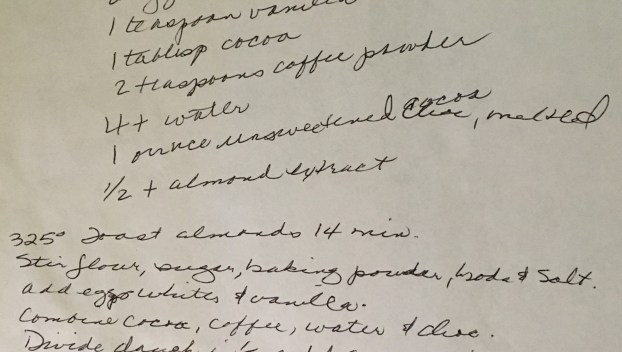 1 teaspoon vanilla
1 tablisp cocoa
2 teaspoons coffee powder
4 t water
cocoa
1 ounce unsweetened choc, melted
1/2 t almond extract
325° Toast almonds 14 min.
Stir flour, sugar, baking powder, soda & salt.
add eggs whites & vanilla.
Combine cocoa, coffee, water & choc.
Divide dough